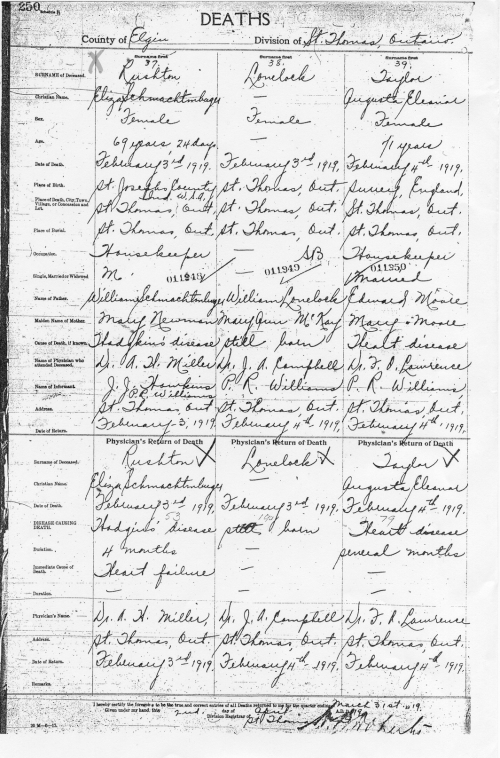 250
Schedule B
DEATHS
County of Elgin Division of St. Thomas, Ontario.
Surname first Surname first Surname first
37. 38. 39.
SURNAME of Deceased. Rushton Lovelock Taylor
Christian Name. Eliza Schmachtenbuger — Augusta Eleanor
Sex. Female Female Female
Age. 69 years, 24 days. — 71 years
Date of Death. February 3rd 1919. February 3rd 1919. February 4th 1919.
Place of Birth. St. Josephs County Ind. U.S.A. St. Thomas, Ont. Surrey, England.
Place of Death, City, Town, Village, or Concession and Lot. St. Thomas, Ont. St. Thomas, Ont. St. Thomas, Ont.
Place of Burial. St. Thomas, Ont. St. Thomas, Ont. St. Thomas, Ont.
Occupation. Housekeeper — SB Housekeeper
Single, Married or Widowed M. 011948 — 011949 011950 Married
Name of Father. William Schmachtenbuger William Lovelock Edward Moore
Maiden Name of Mother. Mary Newman Mary Ann McKay Mary Moore
Cause of Death, if known. Hodgkins disease still born Heart disease
Name of Physician who attended Deceased. Dr. A. H. Miller Dr. J. A. Campbell Dr. F. O. Lawrence
Name of Informant. J. J. Hawkins P. R. Williams P. R. Williams P. R. Williams
Address. St. Thomas, Ont St. Thomas, Ont. St. Thomas, Ont.
Date of Return. February 3, 1919 February 4th 1919, February 4th 1919.
Physician's Return of Death Physician's Return of Death Physician's Return of Death
Surname of Deceased. Rushton X Lovelock X Taylor X
Christian Name. Eliza Schmachtenbuger — Augusta Eleanor
Date of Death. February 3rd 1919, February 3rd 1919. February 4th 1919.
53 79
DISEASE CAUSING DEATH. Hodgins' disease still born Heart disease
Duration. 4 months — several months
Immediate Cause of Death. Heart failure — —
Duration. — — —
Physician's Name. Dr. A. H. Miller, Dr. J. A. Campbell Dr. F. O. Lawrence
Address. St. Thomas, Ont. St. Thomas, Ont. St. Thomas, Ont.
Date of Return. February 3rd 1919. February 4th 1919. February 4th 1919.
Remarks.
I hereby certify the foregoing to be the true and correct entries of all Deaths returned to me for the quarter ending March 31st 1919.
Given under my hand, this 2nd. day of April A.D. 1919
Division Registrar of St. Thomas